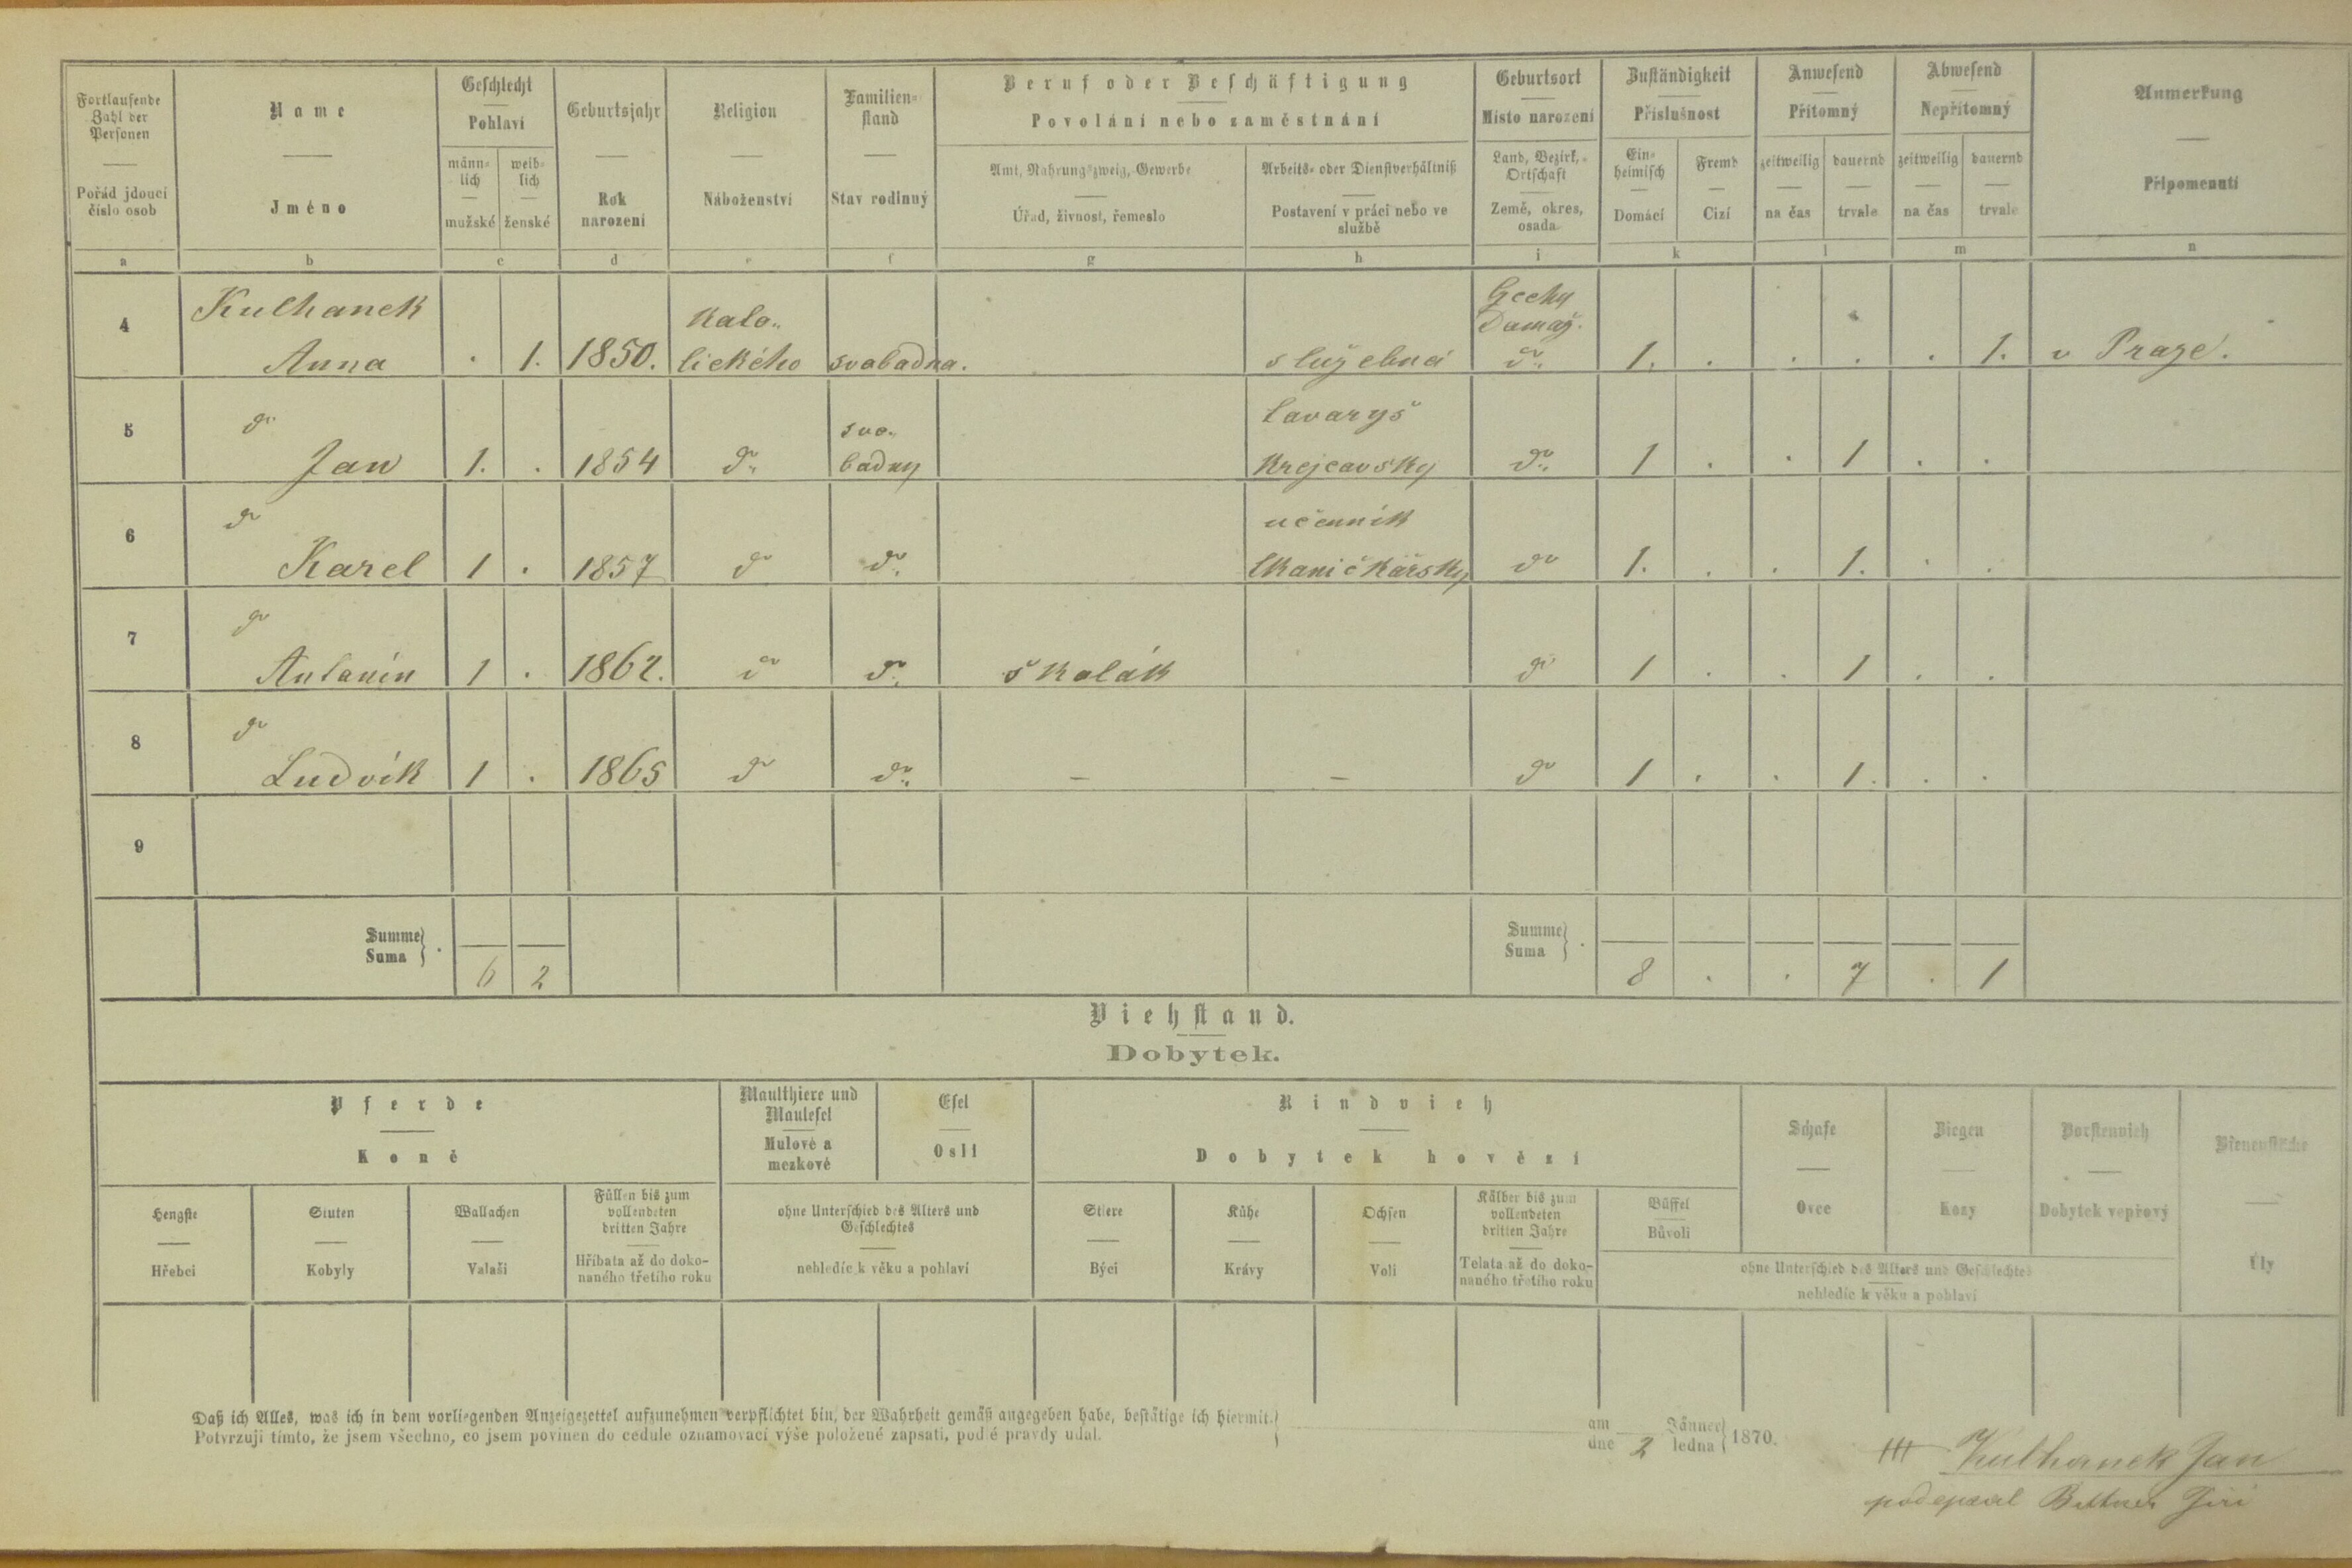 Fortlaufende Zahl der Personen
Pořád jdoucí číslo osob
Name
Jméno
Geschlecht
Pohlaví
männlich
mužské
weiblich
ženské
Geburtsjahr
Rok narození
Religion
Náboženství
Familienstand
Stav rodinný
Beruf oder Beschäftigung
Povolání nebo zaměstnání
Amt, Nahrungszweig, Gewerbe
Úřad, živnost, řemeslo
Arbeits- oder Dienstverhältniß
Postavení v práci nebo ve službě
Geburtsort
Místo narození
Land, Bezirk, Ortschaft
Země, okres, osada
Zuständigkeit
Příslušnost
Einheimisch
Domácí
Fremd
Cizí
Anwesend
Přítomný
zeitweilig
na čas
dauernd
trvale
Abwesend
Nepřítomný
zeitweilig
na čas
dauernd
trvale
Anmerkung
Připomenutí
a b c d e f g h i k l m n
4 Kulhanek Anna . 1. 1850. kato.. lického svobodna. služebná 1. . . . . 1. v Praze.
5 do Jan 1. . 1854 do svo. bodny tovaryš krejčovsky do 1 . . 1 . .
6 do Karel 1 . 1857 do do učenník tkaničkářsky do 1. . . 1. . .
7 do Antonín 1 . 1862. do do školák do 1 . . 1 . .
8 do Ludvík 1 . 1865 do do - - do 1 . . 1. . .
9
Summe
Suma
6 2
Summe
Suma
8 . . 7 . 1
Viehstand.
Dobytek.
Pferde
Koně
Hengste
Hřebci
Stuten
Kobyly
Wallachen
Valaši
Füllen bis zum vollendeten dritten Jahre
Hříbata až do dokonaného třetího roku
Maulthiere und Maulesel
Mulové a mezkové
Esel
Osli
ohne Unterschied des Alters und Geschlechtes
nehledíc k věku a pohlaví
Rindvieh
Dobytek hovězí
Stiere
Býci
Kühe
Krávy
Ochsen
Voli
Kälber bis zum vollendeten dritten Jahre
Telata až do dokonaného třetího roku
Büffel
Bůvoli
Schafe
Ovce
Ziegen
Kozy
Borstenvieh
Dobytek vepřový
ohne Unterschied des Alters und Geschlechtes
nehledíc k věku a pohlaví
Bienenstöcke
Úly
Daß ich Alles, was ich in dem vorliegenden Anzeigezettel aufzunehmen verpflichtet bin, der Wahrheit gemäß angegeben habe, bestätige ich hiermit.
Potvrzuji tímto, že jsem všechno, co jsem povinen do cedule oznamovací výše položené zapsati, podlé pravdy udal.
am
dne 2 Jänner
ledna 1870.
+++ Kulhanek Jan
podepsal Jiri